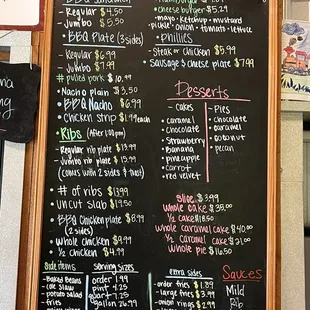 BBQ Sandwich
- Regular $4.50
- Jumbo $5.50
BBQ Plate (3 sides)
- Regular $6.99
- Jumbo $7.99
# pulled pork $10.99
Nacho plain $3.50
BBQ Nacho $6.99
Chicken Strip $1.99 each
Ribs (After 1:00pm)
- Regular rib plate $13.99
- Jumbo rib plate $15.99
(comes with 2 sides & toast)
- # of ribs $13.99
- Uncut slab $19.50
- BBQ Chicken plate $8.99
(2 sides)
- whole chicken $9.99
- 1/2 chicken $4.99
Side items
- Baked Beans
- cole slaw
- potato salad
- fries
Serving sizes
order 1.99
pint 4.25
quart 7.25
gallon 26.99
cheeseburger $5.29
-mayo - ketchup - mustard
- pickle - onion - tomato - lettuce
Phillies
- Steak or Chicken $5.99
- Sausage & cheese plate $7.99
Desserts
- Cakes
- caramel
- chocolate
- Strawberry
- Banana
- pineapple
- carrot
- red velvet
- Pies
- chocolate
- caramel
- coconut
- pecan
slice $3.99
whole cake $35.00
1/2 cake $18.50
whole caramel cake $40.00
1/2 caramel cake $21.00
whole pie $16.50
extra sides
- order fries $1.89
- large fries $3.99
- onion rings $2.99
Sauces
Mild
Rib